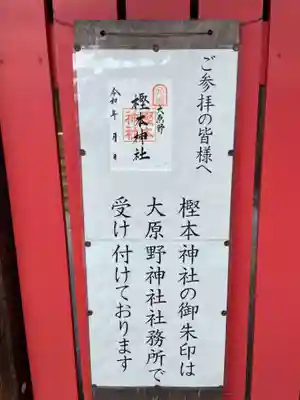 ご参拝の皆様へ
大原野
樫本神社
令和 年 月 日
樫本神社の御朱印は
大原野神社社務所で
受け付けております